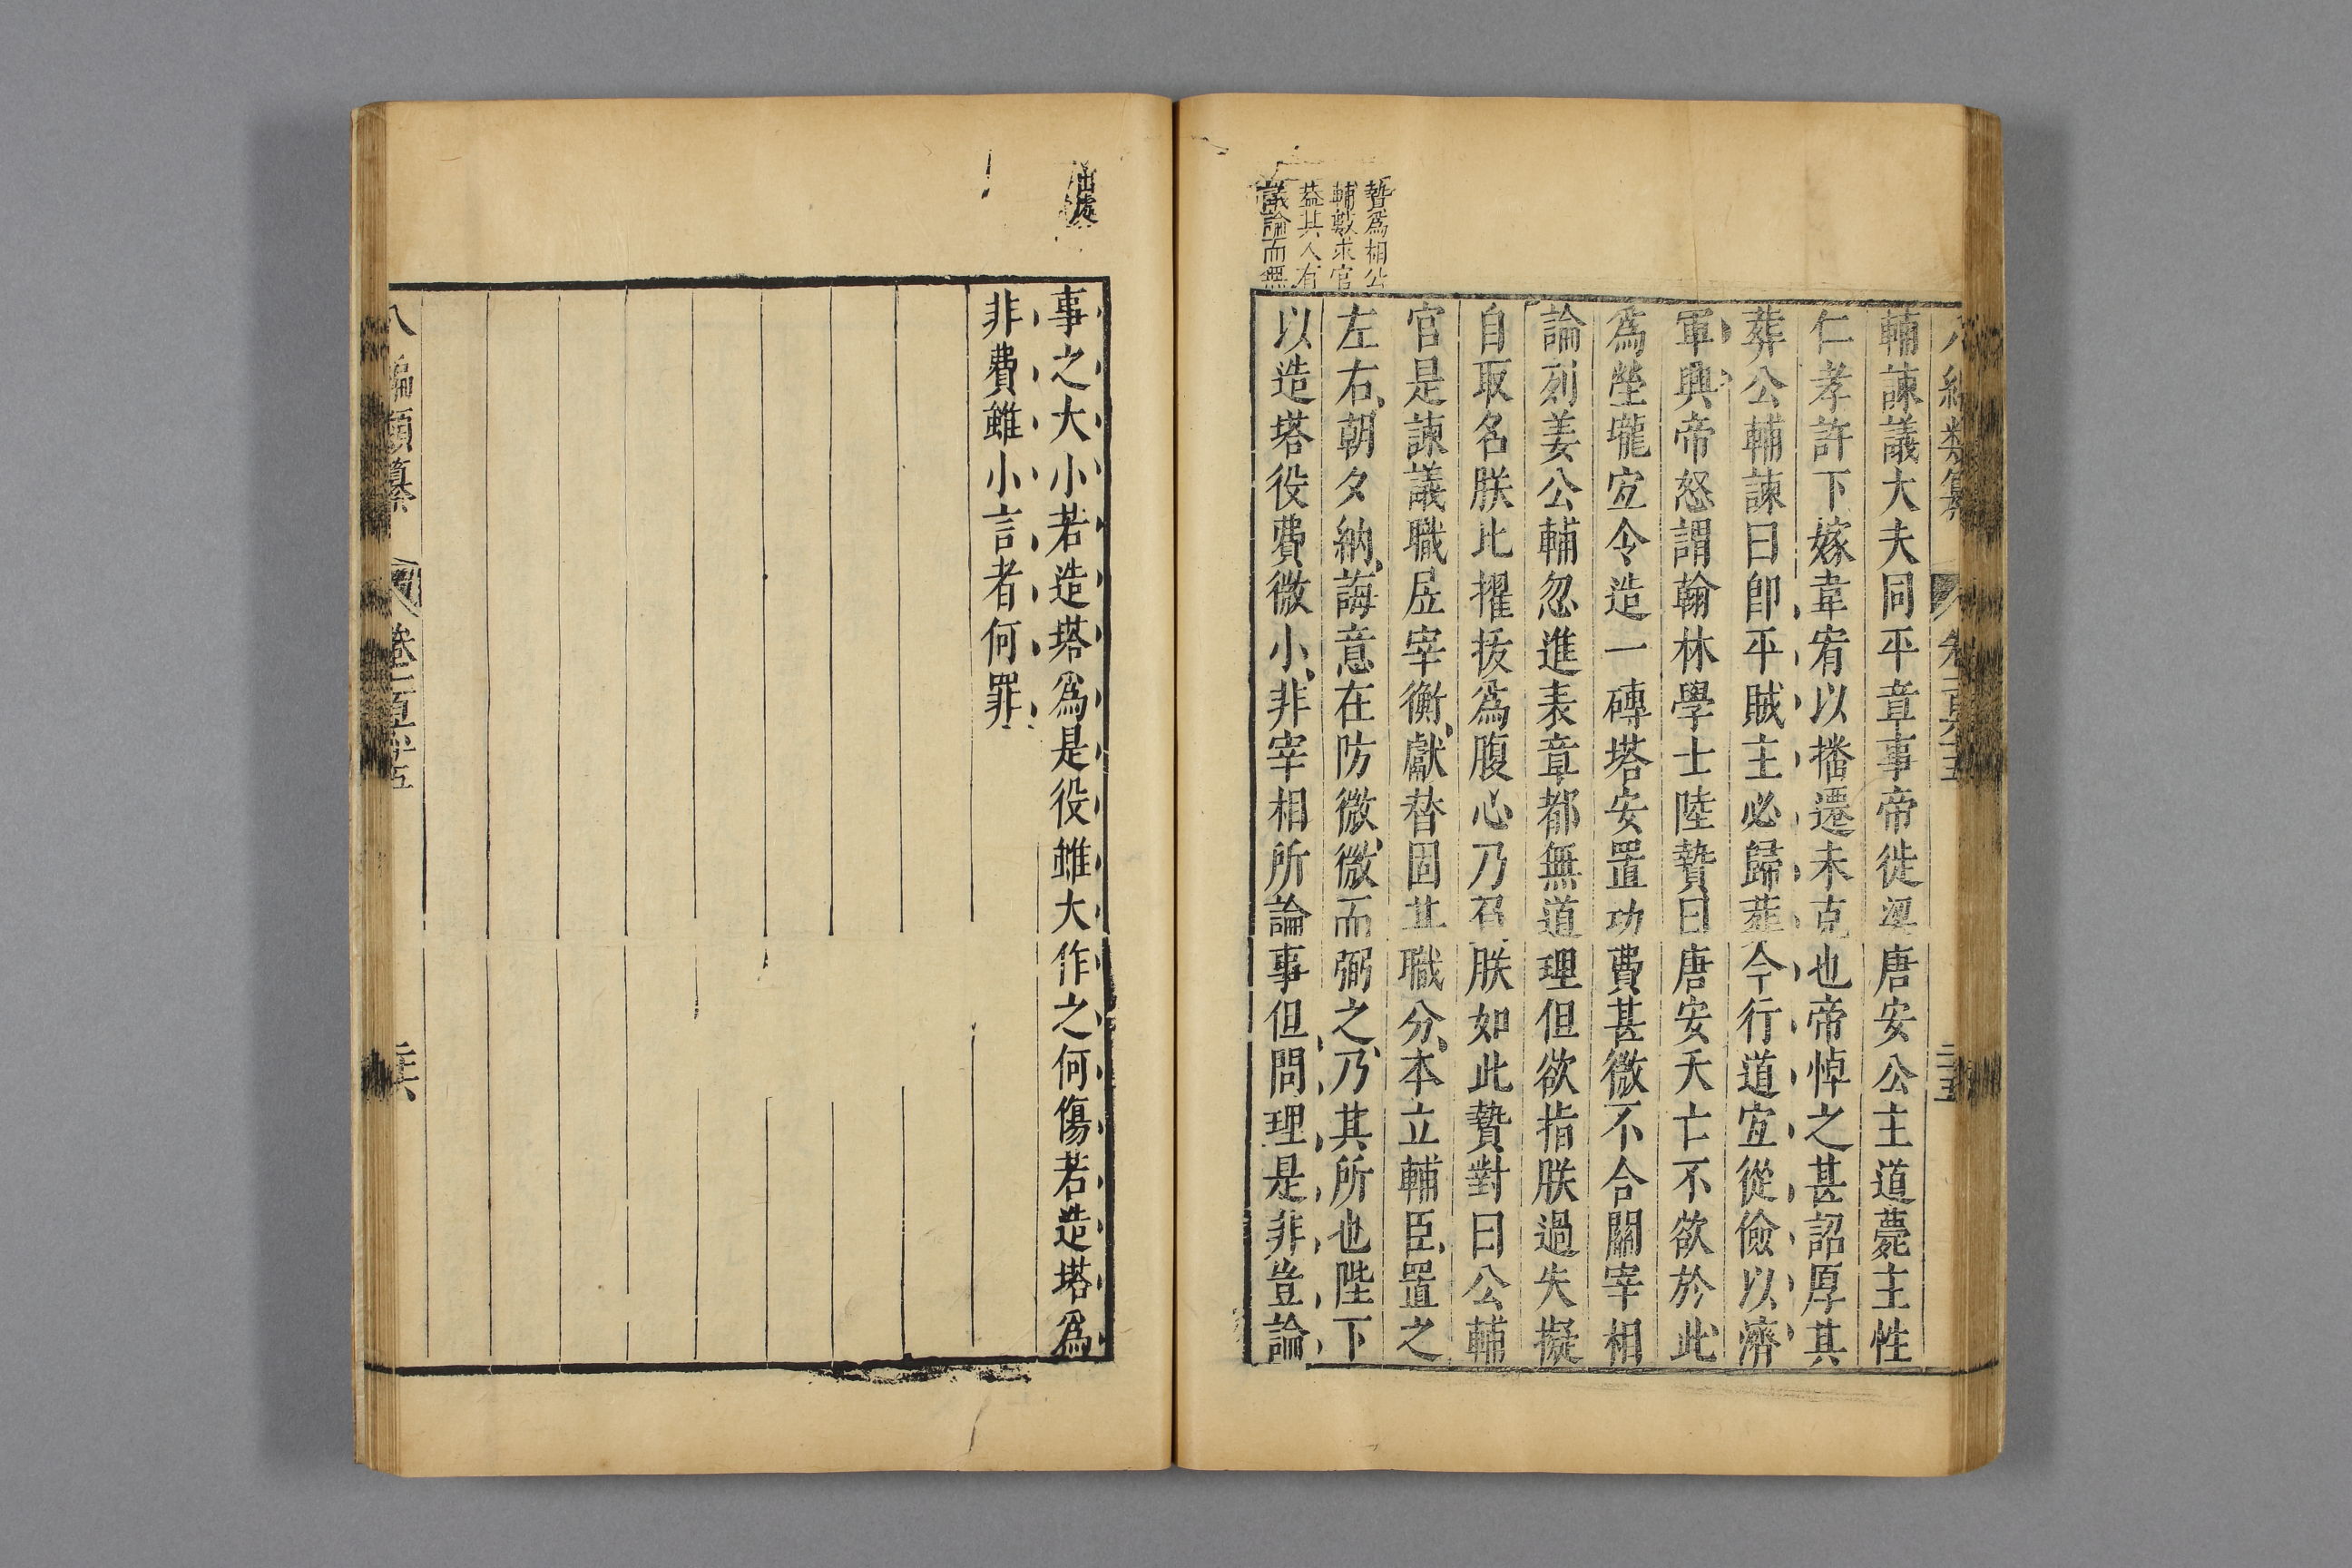 輔諫議大夫同平章事帝徙梁唐安公主道薨主性
仁孝許下嫁韋宥以播遷未克也帝悼之甚詔厚其
葬公輔諫曰卽平賊主必歸葬今行道宜從儉以濟
軍興帝怒謂翰林學士陸贄曰唐安夭亡不欲於此
爲塋壠宜令造一磚塔安置功費甚微不合關宰相
論列姜公輔忽進表章都無道理但欲指朕過失擬
自取名朕比擢拔爲腹心乃召朕如此贄對曰公輔
官是諫議職居宰衡獻替固其職分本立輔臣置之
左右朝夕納誨意在防微微而弼之乃其所也陛下
以造塔役費微小非宰相所論事但問理是非豈論
贄爲相公
輔數求官
葢其人有
議論而無
出處
事之大小若造塔爲是役雖大作之何傷若造塔爲
非費雖小言者何罪
八編類纂
卷二百六十五
二十六